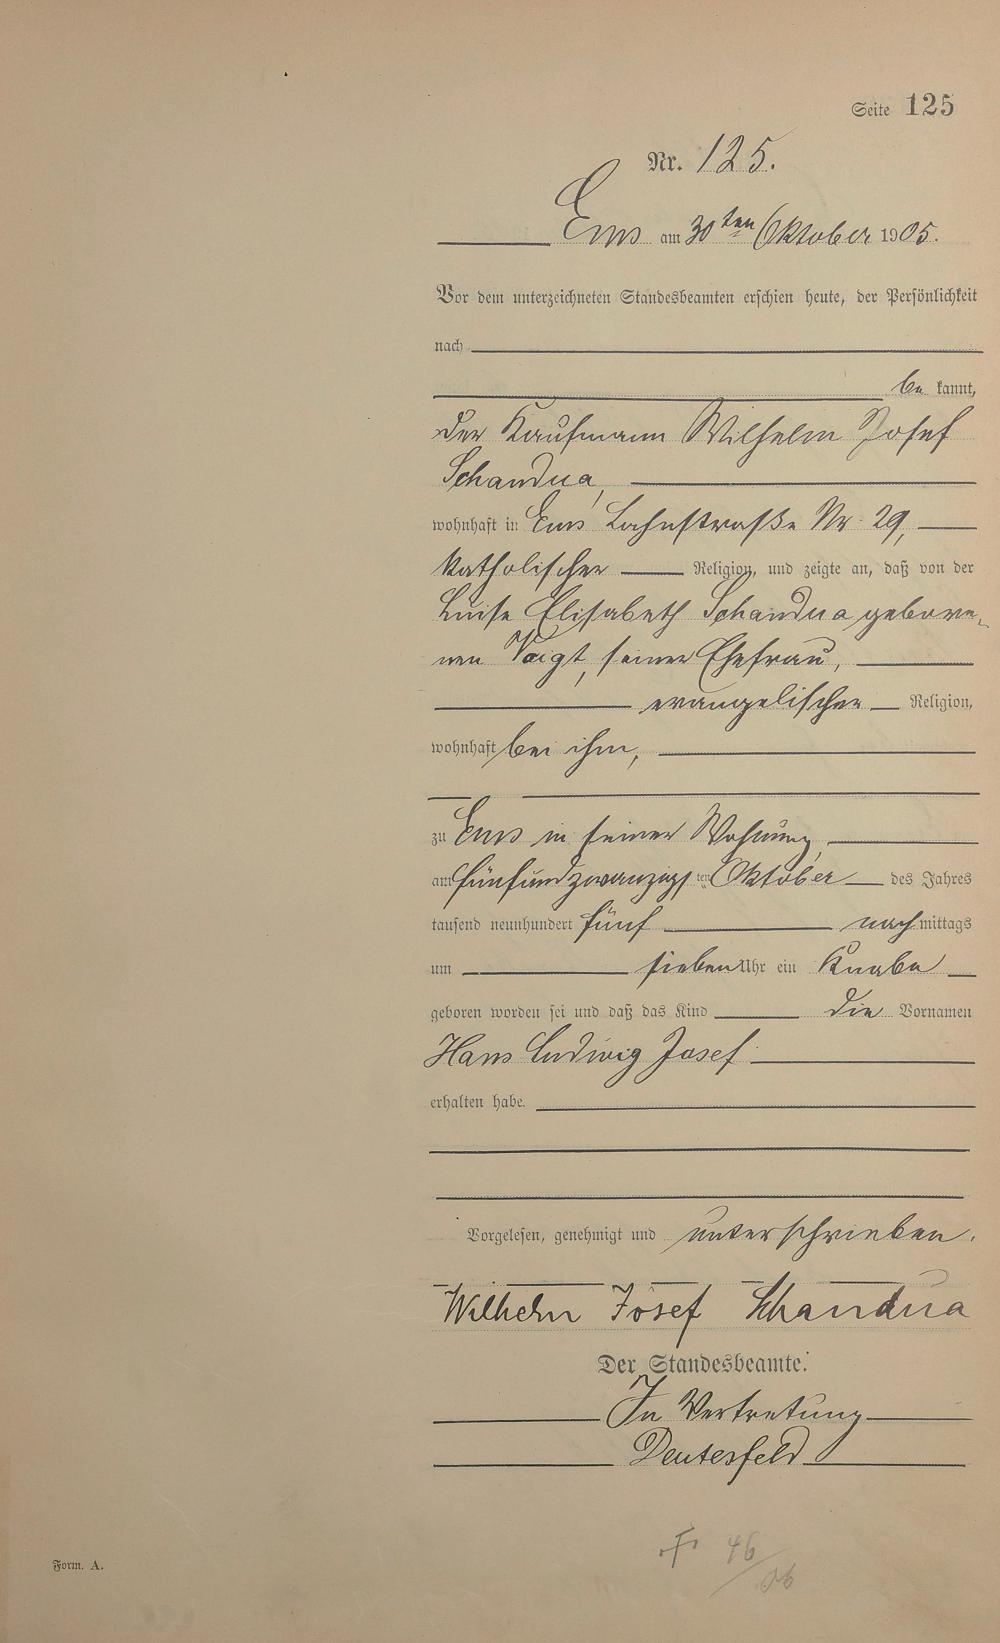 Seite 125
Nr. 125.
Ems am 30ten Oktober 1905.
Vor dem unterzeichneten Standesbeamten erschien heute, der Persönlichkeit
nach
be kannt,
der Kaufmann Wilhelm Josef
Schandua,
wohnhaft in Ems Lahnstraße Nr. 29,
katholischer Religion, und zeigte an, daß von der
Luise Elisabeth Schandua gebore-
nen Voigt, seiner Ehefrau,
evangelischer Religion,
wohnhaft bei ihm,
zu Ems in seiner Wohnung,
am fünfundzwanzigsten Oktober des Jahres
tausend neunhundert fünf nachmittags
um sieben Uhr ein Knabe
geboren worden sei und daß das Kind die Vornamen
Hans Ludwig Josef
erhalten habe.
Vorgelesen, genehmigt und unterschrieben.
Wilhelm Josef Schandua
Der Standesbeamte.
In Vertretung
Deutesfeld
Form. A.
46
06